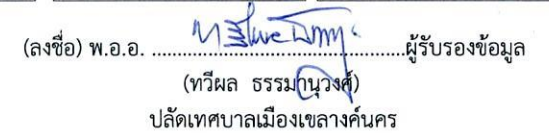 (ลงชื่อ) พ.อ.อ. ........................................ผู้รับรองข้อมูล
(ทวีผล ธรรมานุวงศ์)
ปลัดเทศบาลเมืองเขลางค์นคร